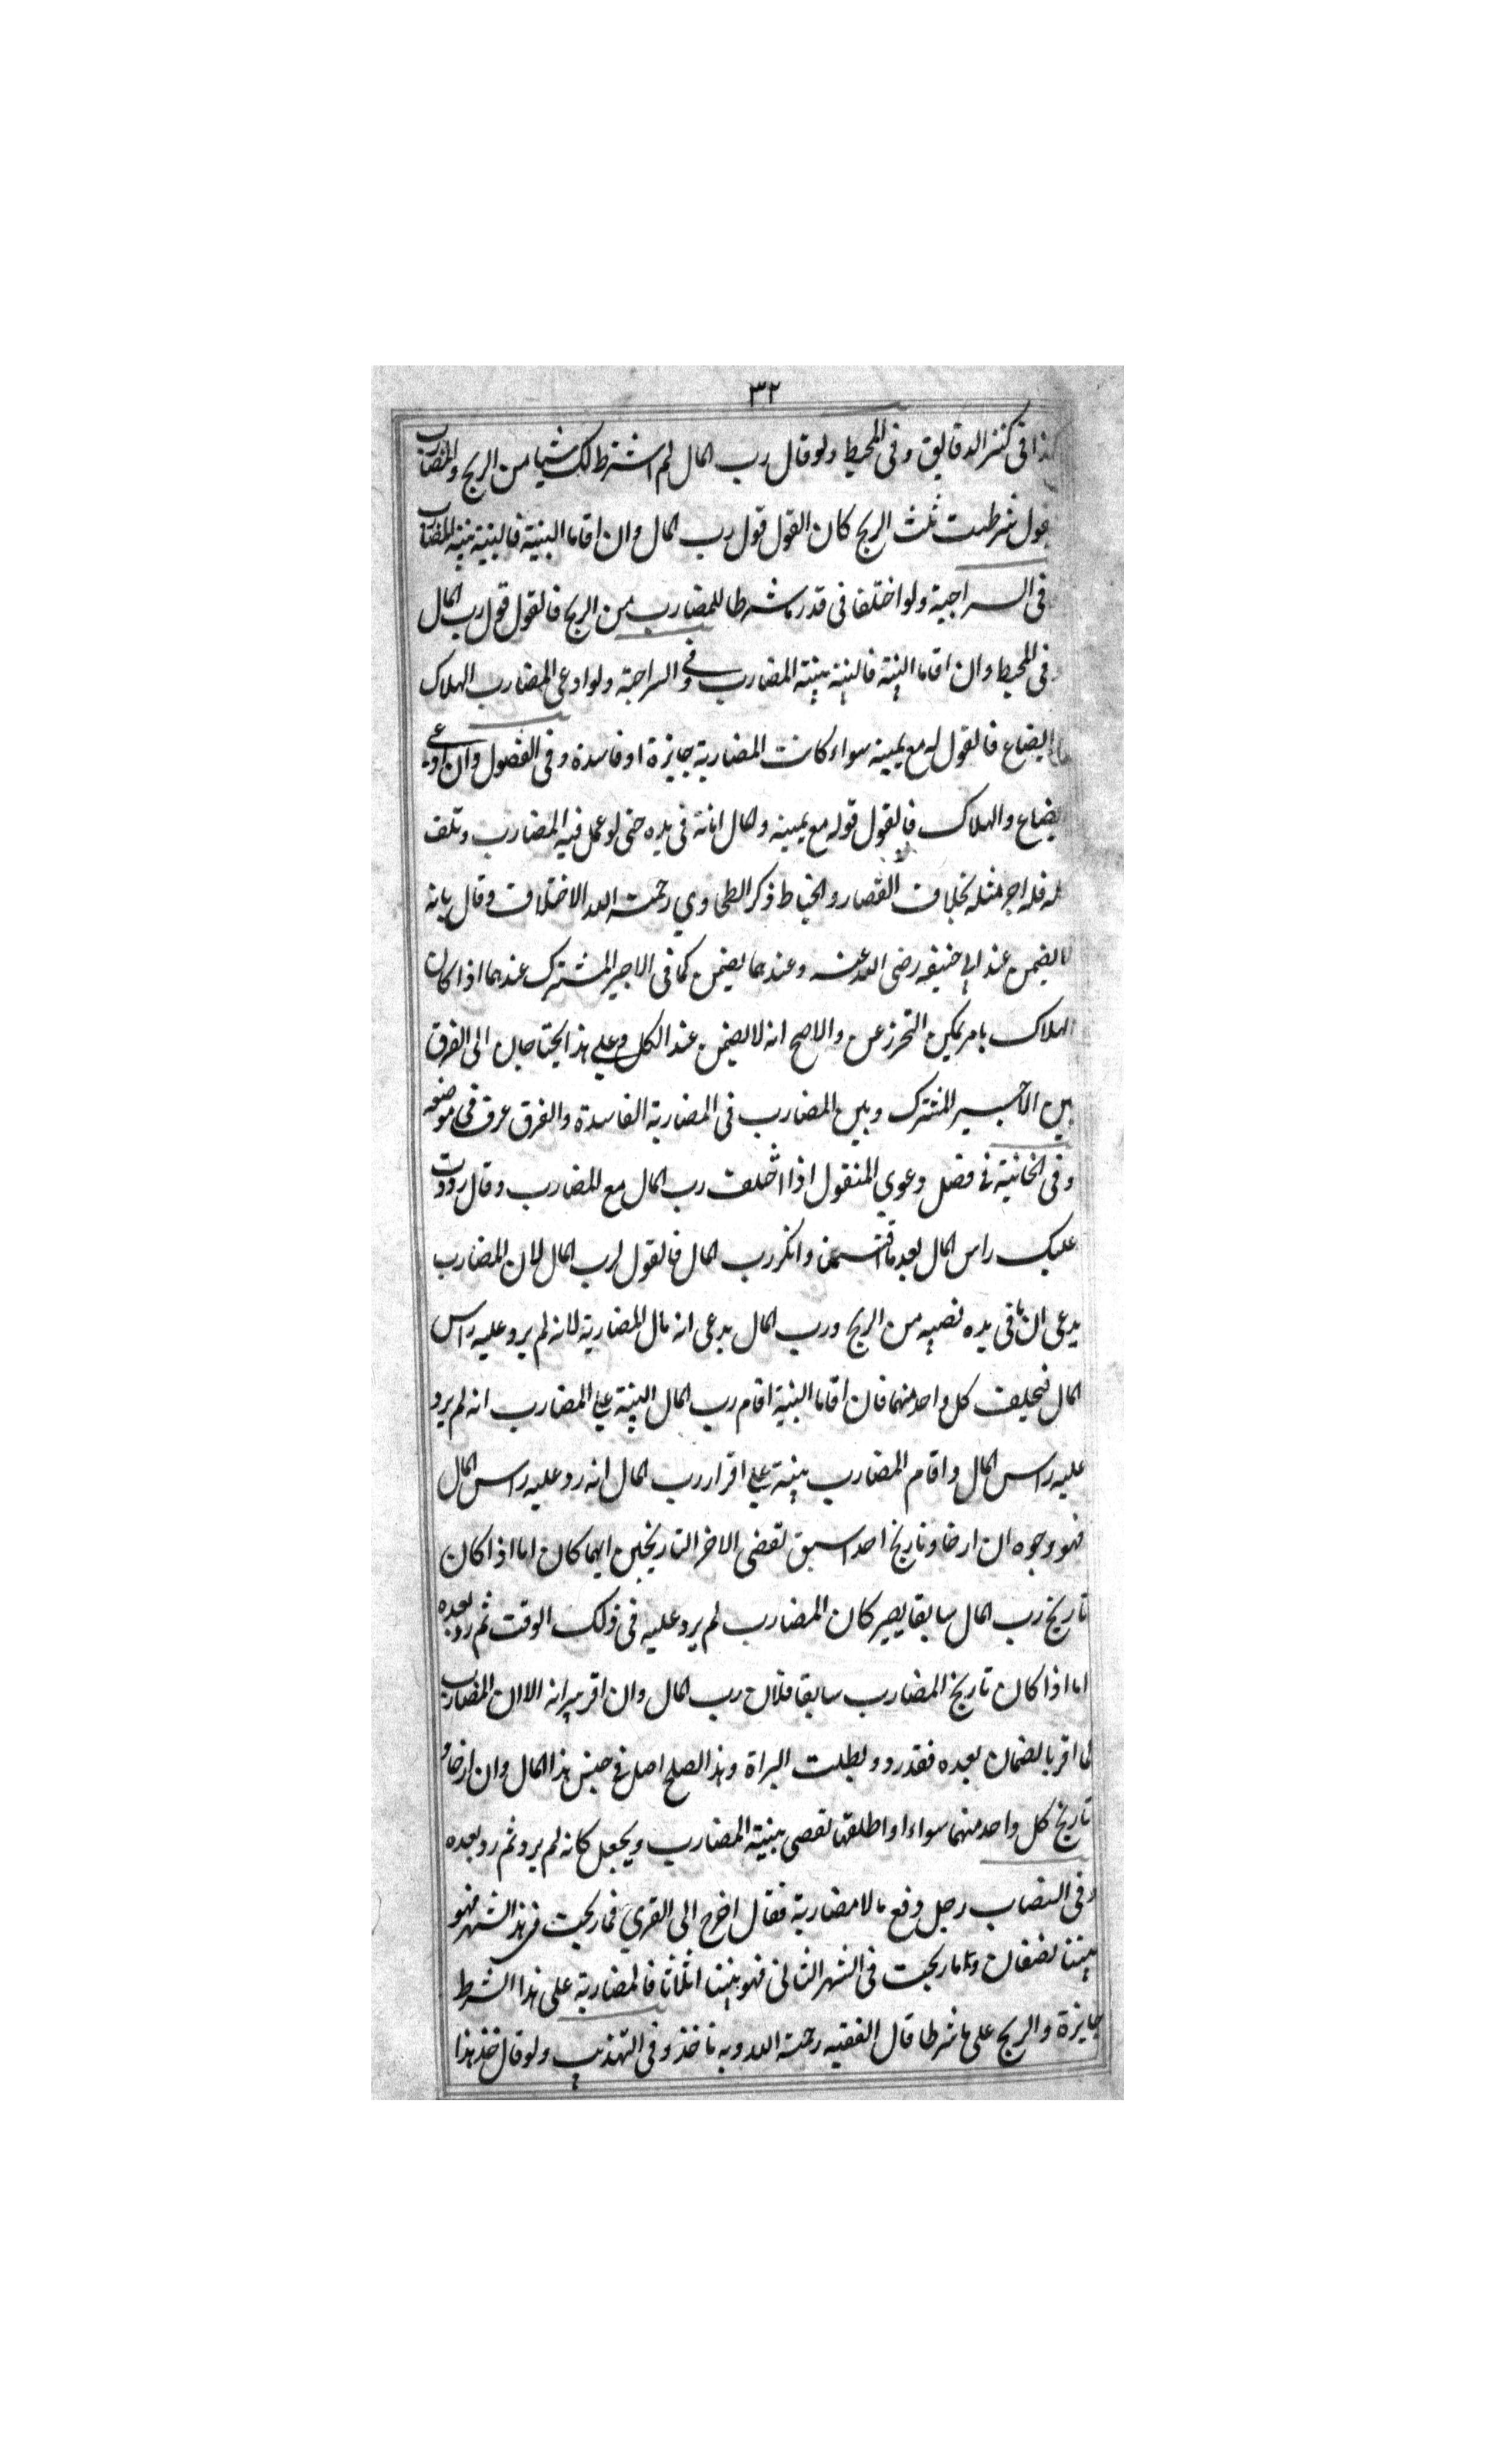 ٣٢
كذا فى كنز الدقايق وفى المحيط ولو قال رب المال لم اشترط لك شيا من الربح والمضارب
يقول شرطت ثلث الربح كان القول قول رب المال وان اقاما البينة فالبينة بينة المضارب
فى السراجية ولو اختلفا فى قدر ما شرطا للمضارب من الربح فالقول قول رب المال
وفى المحيط وان اقاما البينة فالبينة بينة المضارب وفى السراجية ولو ادعى المضارب الهلاك
الضياع فالقول له مع يمينه سواء كانت المضاربة جايزة او فاسدة وفى الفصول وان ادعى
الضياع والهلاك فالقول قوله مع يمينه والمال امانة فى يده حتى لو عمل فيه المضارب وتلف
له فله اجر مثله بخلاف القصار والخياط ذكر الطحاوي رحمة الله الاختلاف وقال بانه
لا يضمن عند ابي حنيفه رضى الله عنه وعندهما يضمن كما فى الاجير المشترك عندهما اذا كان
الهلاك بامر يمكن التحرز عن والاصح انه لا يضمن عند الكل وعلى هذا يحتاجان الى الفرق
بين الاجير المشترك وبين المضارب فى المضاربة الفاسدة والفرق عرف فى موضعه
وفى الخانية فى فصل دعوي المنقول اذا اختلف رب المال مع المضارب وقال رددت
عليك راس المال بعد ما اقتسمنا وانكر رب المال فالقول لرب المال لان المضارب
يدعى ان ما فى يده نصيبه من الربح ورب المال يدعى انه مال المضاربة لانه لم يرد عليه راس
المال فيحلف كل واحد منهما فان اقاما البينة اقام رب المال البينة على المضارب انه لم يرد
عليه راس المال واقام المضارب بينة على اقرار رب المال انه رد عليه راس المال
فهو وجوه ان ارخا وتاريخ احدا سبق تقضى الاخر التاريخين ايهما كان اما اذا كان
تاريخ رب المال سابقا يصير كان المضارب لم يرد عليه فى ذلك الوقت ثم رد بعده
اما اذا كان تاريخ المضارب سابقا فلان رب المال وان اقر ببرانه الا ان المضارب
لما اقر بالضمان بعده فقد رد وبطلت البراة وهذا الصلح اصل فى جنس هذا المال وان ارخا و
تاريخ كل واحد منهما سواء او اطلقها تقضى ببينة المضارب ويجعل كانه لم يرد ثم رد بعده
وفى النصاب رجل دفع مالا مضاربة فقال اخرج الى القري فما ربحت فى هذا الشهر فهو
بيننا نصفان وما ربحت فى الشهر الثانى فهو بيننا اثلاثا فالمضاربة على هذا الشرط
جايزة والربح على ما شرطا قال الفقيه رحمة الله وبه ناخذ وفى التهذيب ولو قال خذ هذا